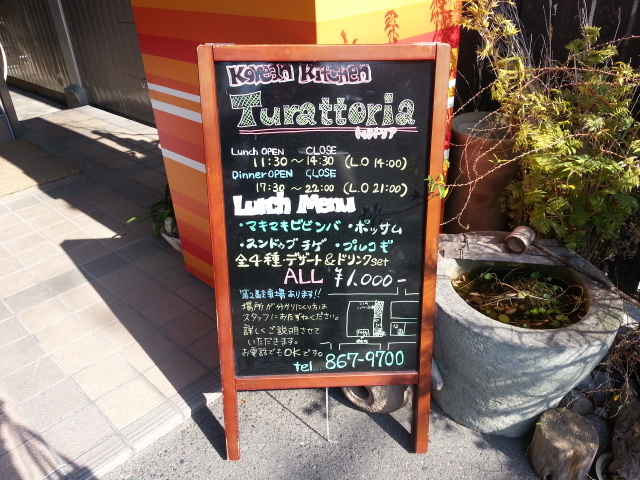 Korean Kitchen
Turattoria
トラットリア
Lunch OPEN CLOSE
11:30〜14:30 (L.O 14:00)
Dinner OPEN CLOSE
17:30〜22:00 (L.O 21:00)
Lunch Menu
・マキマキビビンバ・ポッサム
・スンドゥブチゲ・プルコギ
全4種・デザート&ドリンクset
ALL ¥1.000-
第2駐車場あります!!
場所が分かりにくい方は
スタッフにおたずねください。
詳しくご説明させて
いただきます。
お電話でもOKです。
tel... 867-9700